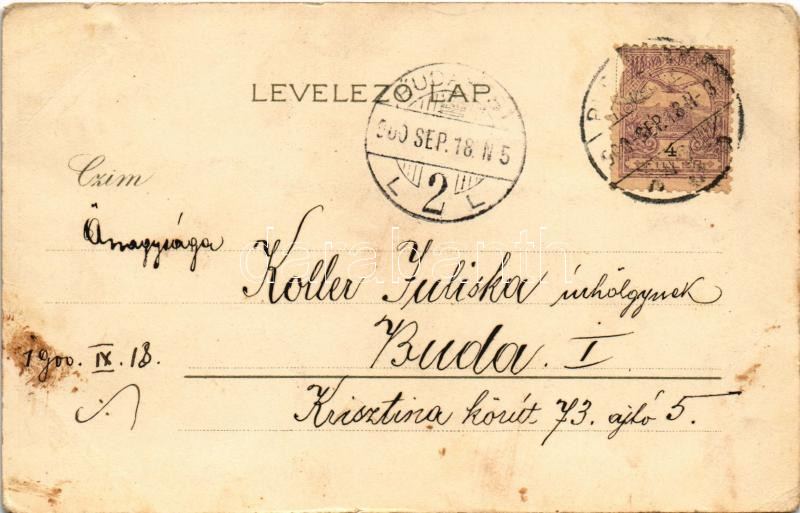 LEVELEZŐ LAP.
BUDAPEST
900 SEP. 18. N 5
2
L L
900 SEP. 18. N 8
4
Czim
Őnagysága
Koller Juliska úrhölgynek
Buda. I.
1900. IX. 18.
Krisztina körút 73. ajtó 5.
darabanth